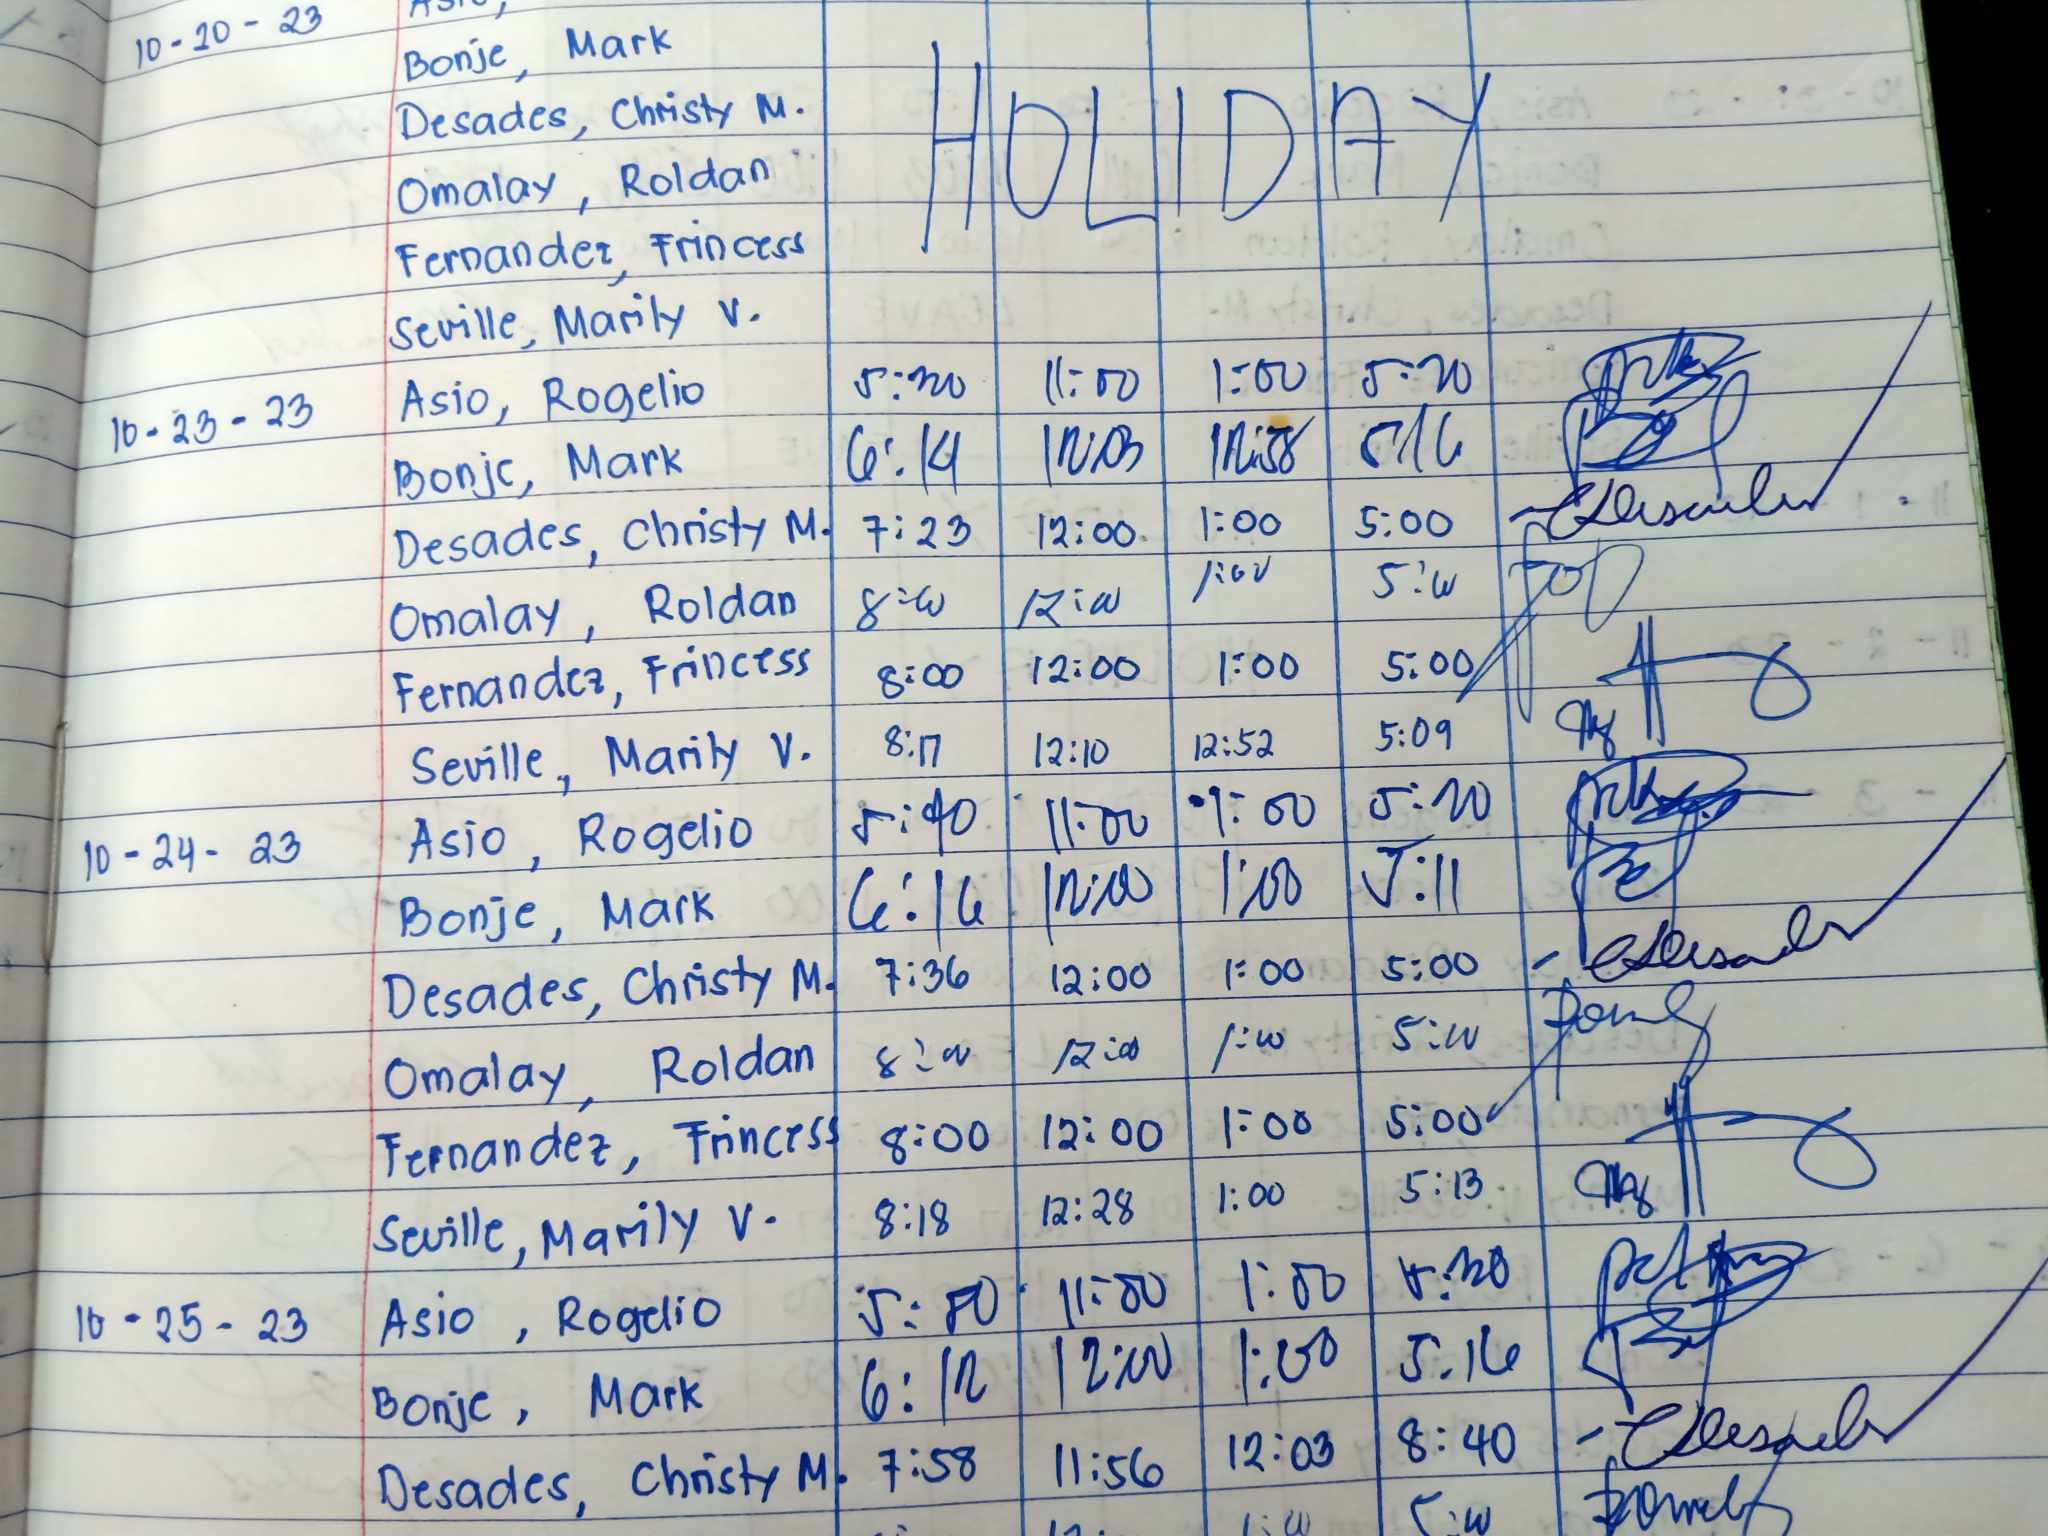 10-20-23 Asio,
Bonje, Mark
Desades, Christy M.
Omalay, Roldan
Fernandez, Frincess
Seville, Marily V.
HOLIDAY
10-23-23 Asio, Rogelio 5:20 11:00 1:00 5:20
Bonje, Mark 6:14 12:03 12:58 5:16
Desades, Christy M. 7:23 12:00 1:00 5:00
Omalay, Roldan 8:00 12:00 1:00 5:00
Fernandez, Frincess 8:00 12:00 1:00 5:00
Seville, Marily V. 8:17 12:10 12:52 5:09
10-24-23 Asio, Rogelio 5:40 11:00 1:00 5:20
Bonje, Mark 6:16 12:00 1:00 5:11
Desades, Christy M. 7:36 12:00 1:00 5:00
Omalay, Roldan 8:00 12:00 1:00 5:00
Fernandez, Frincess 8:00 12:00 1:00 5:00
Seville, Marily V. 8:18 12:28 1:00 5:13
10-25-23 Asio, Rogelio 5:50 11:00 1:00 5:20
Bonje, Mark 6:12 12:00 1:00 5:16
Desades, Christy M. 7:58 11:56 12:03 8:40